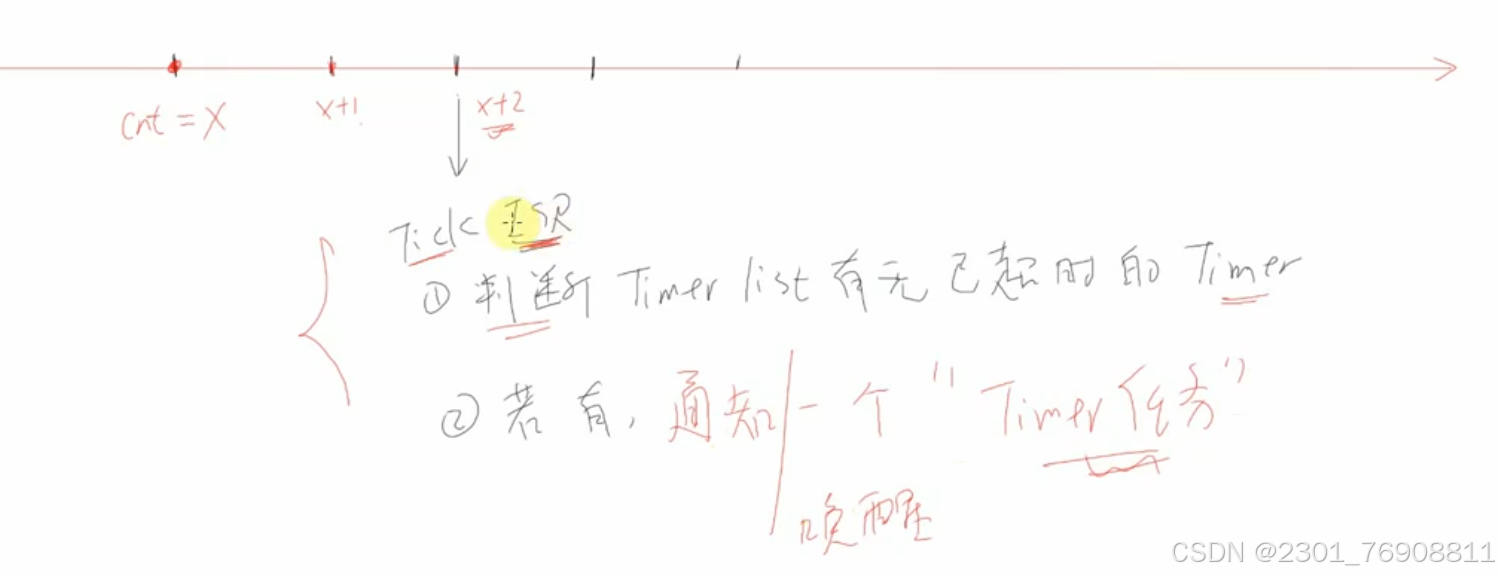 cnt = X
x+1
x+2
Tick ISR
① 判断 Timer list 有无已超时的 Timer
② 若有，通知 一个 "Timer 任务"
唤醒
CSDN @2301_76908811